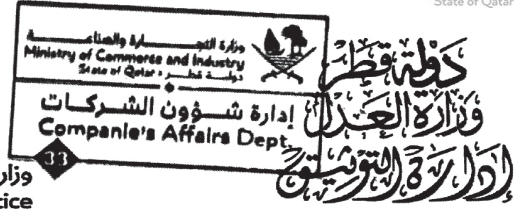 State of Qatar
وزارة التجـــارة والصناعـــة
Ministry of Commerce and Industry
State of Qatar • دولـــة قطـــر
إدارة شـــؤون الشـــركـــات
Companie's Affairs Dept.
33
دولة قطر
وزارة العدل
إدارة التوثيق
وزار
tice